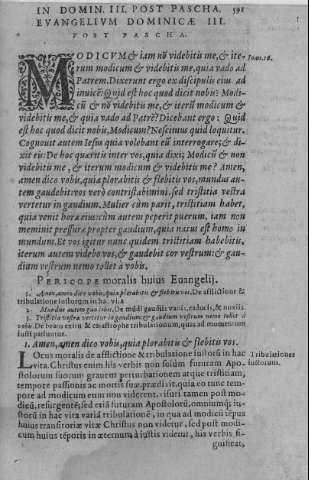 IN DOMIN. III. POST PASCHA. 591
EVANGELIVM DOMINICÆ III.
POST PASCHA.
MODICVM & iam nō videbitis me, & ite-
rum modicum & videbitis me, quia vado ad
Patrem. Dixerunt ergo ex discipulis eius ad
inuicē: Quid est hoc quod dicit nobis: Modi-
cū & nō videbitis me, & iterū modicum &
videbitis me, & quia vado ad Patrē? Dicebant ergo: Quid
est hoc quod dicit nobis, Modicum? Nescimus quid loquitur.
Cognouit autem Iesus quia volebant eū interrogare; & di-
xit eis: De hoc quæritis inter vos, quia dixi; Modicū & non
videbitis me, & iterum modicum & videbitis me? Amen,
amen dico vobis, quia plorabitis & flebitis vos, mundus au-
tem gaudebit: vos verò contristabimini, sed tristitia vestra
vertetur in gaudium. Mulier cùm parit, tristitiam habet,
quia venit hora eius: cùm autem peperit puerum, iam non
meminit pressuræ propter gaudium, quia natus est homo in
mundum. Et vos igitur nunc quidem tristitiam habebitis,
iterum autem videbo vos, & gaudebit cor vestrum: & gau-
dium vestrum nemo tollet à vobis.
Ioan. 16.
PERICOPE moralis huius Euangelij.
1. Amen, amen dico vobis, quia plorabitis & flebitis vos. De afflictione &
tribulatione iustorum in hac vita
2. Mundus autem gaudebit. De mūdi gaudijs vanis, caducis, & noxiis.
3. Tristitia vestra vertetur in gaudium: & gaudium vestrum nemo tollet à
vobis. De beato exitu & catastrophe tribulationum, quas ad momentum
iusti patiuntur.
1. Amen, amen dico vobis, quia plorabitis & flebitis vos.
LOcus moralis de afflictione & tribulatione iustorū in hac
vita. Christus enim his verbis non solùm futuram Apo-
stolorum suorum grauem perturbationem atque tristitiam,
tempore passionis ac mortis suæ, prædixit, quia eo tunc tempo-
re ad modicum eum non viderent, visuri tamen post mo-
dicū, resurgentē; sed etiā futuram Apostolorū, omniumq́; iu-
storū in hac vita variā tribulationē, in qua ad modicū tēpus
huius transitoriæ vitæ Christus non videtur, sed post modi-
cum huius tēporis in æternum à iustis videtur, his verbis si-
gnificat,
Tribulationes
iustorum.